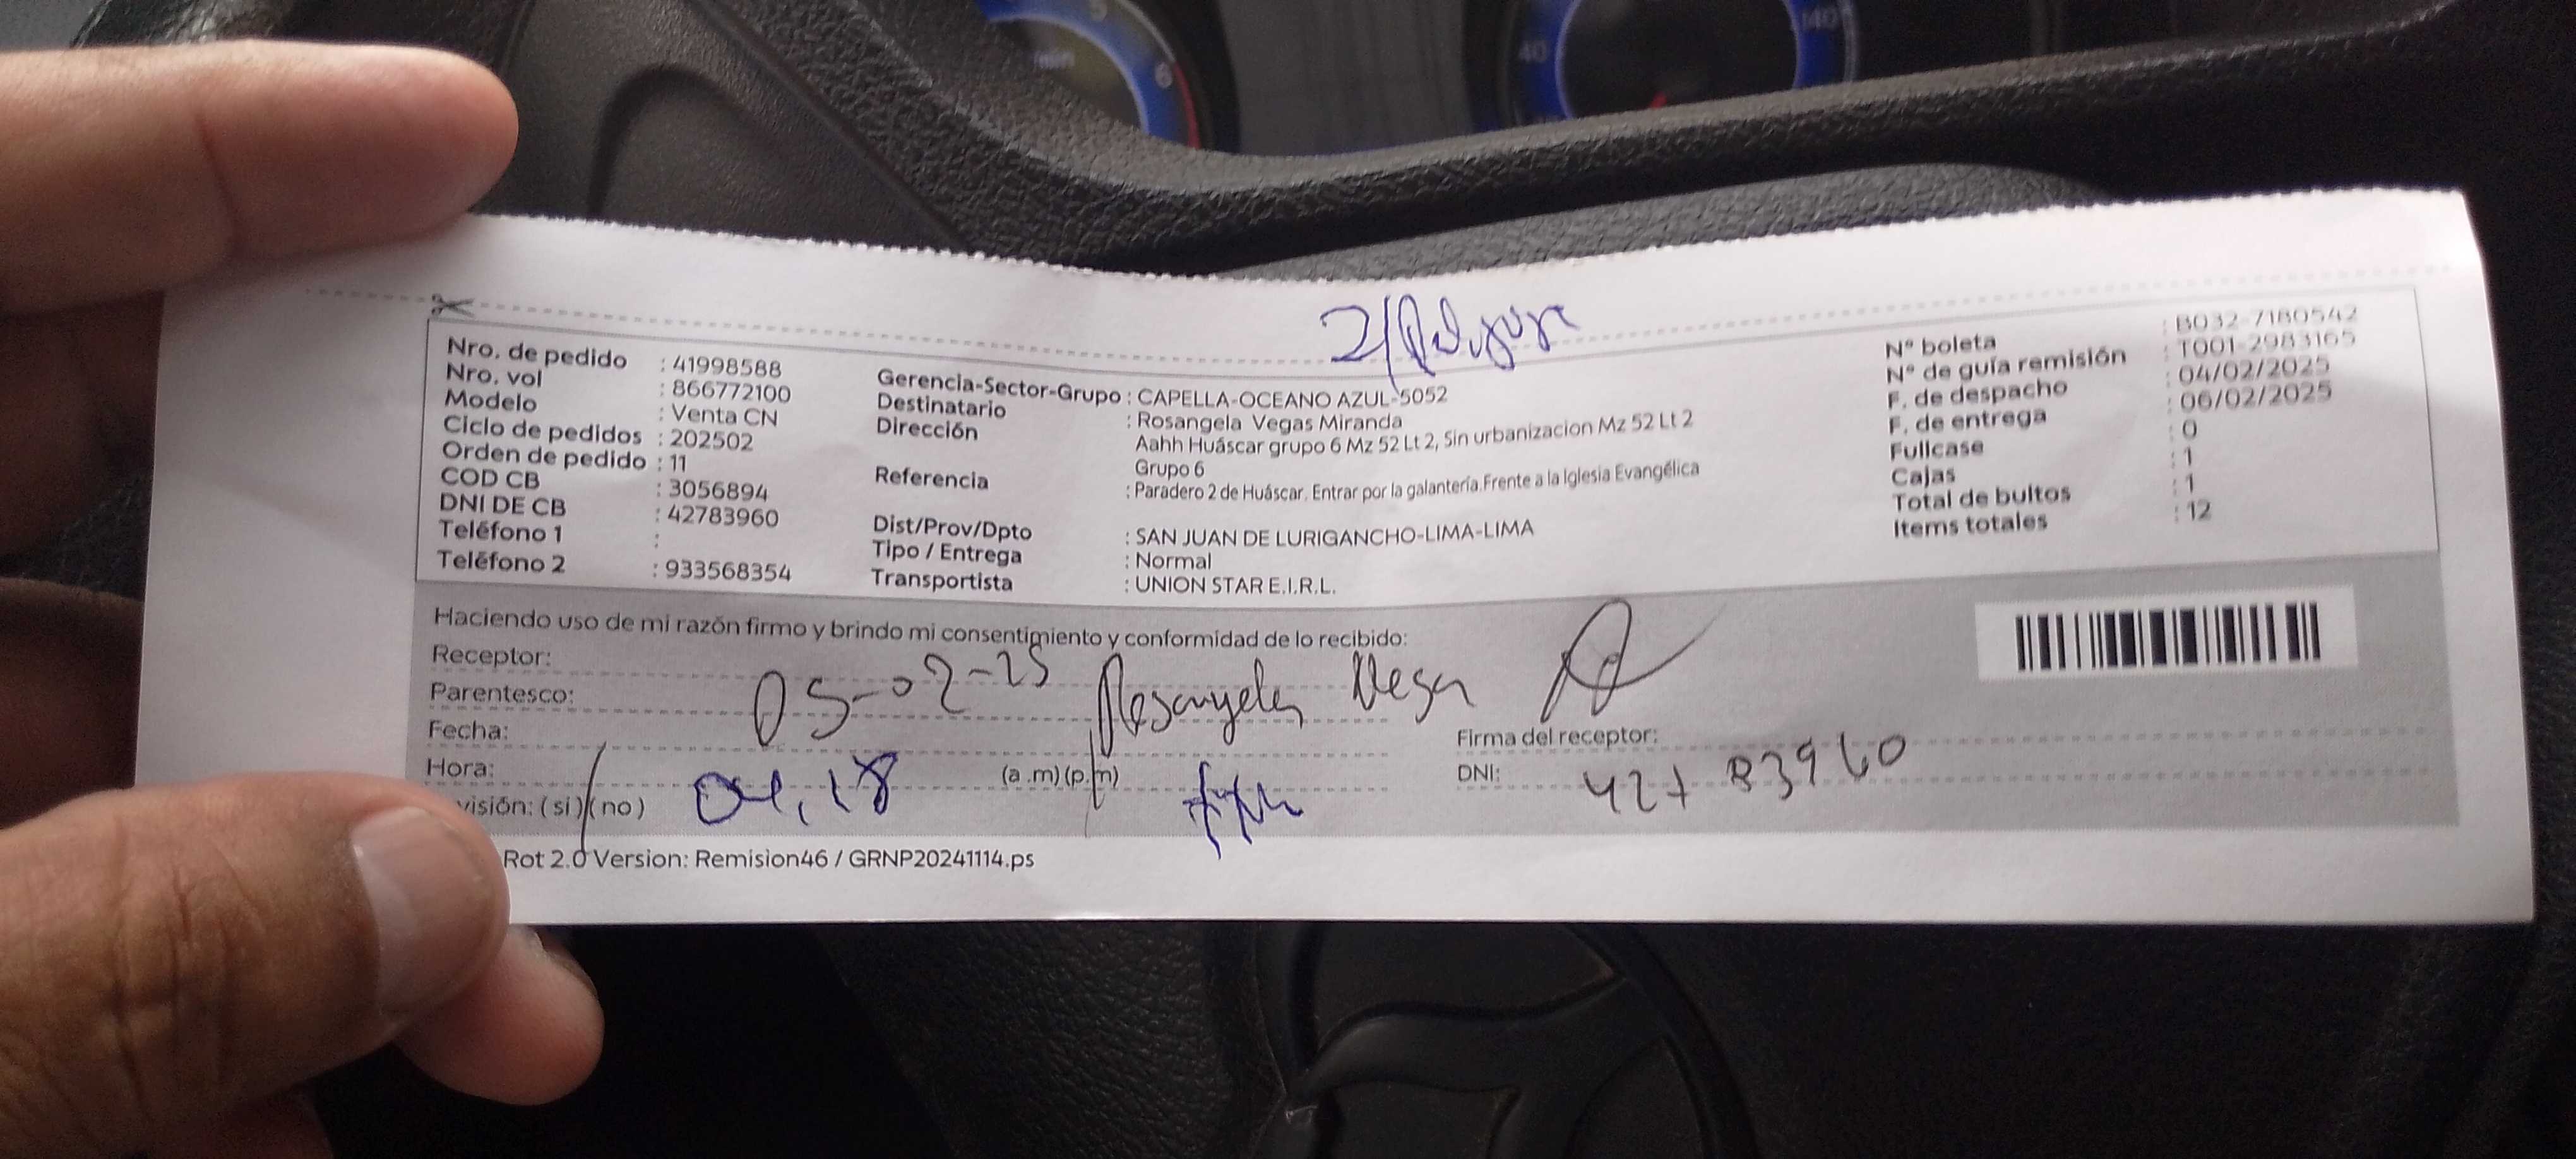 Nro. de pedido : 41998588
Nro. vol : 866772100
Modelo : Venta CN
Ciclo de pedidos : 202502
Orden de pedido : 11
COD CB : 3056894
DNI DE CB : 42783960
Teléfono 1 :
Teléfono 2 : 933568354
Gerencia-Sector-Grupo : CAPELLA-OCEANO AZUL-5052
Destinatario : Rosangela Vegas Miranda
Dirección Aahh Huáscar grupo 6 Mz 52 Lt 2, Sin urbanizacion Mz 52 Lt 2
Grupo 6
Referencia : Paradero 2 de Huáscar. Entrar por la galantería.Frente a la Iglesia Evangélica
Dist/Prov/Dpto : SAN JUAN DE LURIGANCHO-LIMA-LIMA
Tipo / Entrega : Normal
Transportista : UNION STAR E.I.R.L.
N° boleta : B032-7180542
N° de guía remisión : T001-2983165
F. de despacho : 04/02/2025
F. de entrega : 06/02/2025
Fullcase : 0
Cajas : 1
Total de bultos : 1
Items totales : 12
Haciendo uso de mi razón firmo y brindo mi consentimiento y conformidad de lo recibido:
Receptor:
Parentesco: 05-02-25 Rosangela Vega
Fecha:
Firma del receptor:
Hora: 04,18 (a .m) (p.m)
DNI: 42783960
visión: ( si ) ( no )
Rot 2.0 Version: Remision46 / GRNP20241114.ps
5
6
40
140